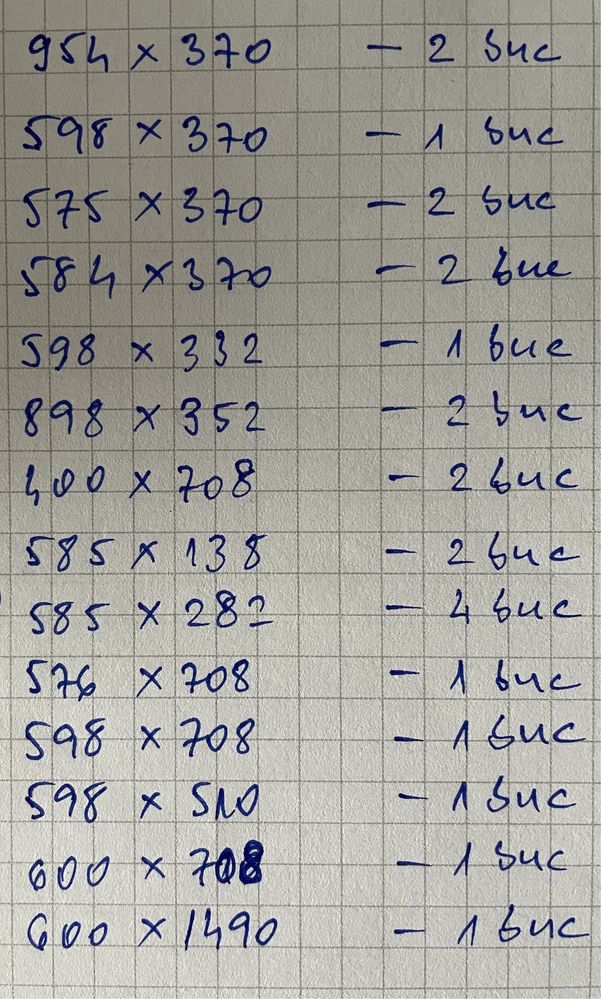 954 × 370 - 2 вис
598 × 370 - 1 вис
575 × 370 - 2 вис
584 × 370 - 2 вис
598 × 332 - 1 вис
898 × 352 - 2 вис
400 × 708 - 2 вис
585 × 138 - 2 вис
585 × 282 - 4 вис
576 × 708 - 1 вис
598 × 708 - 1 вис
598 × 510 - 1 вис
600 × 708 - 1 вис
600 × 1490 - 1 вис